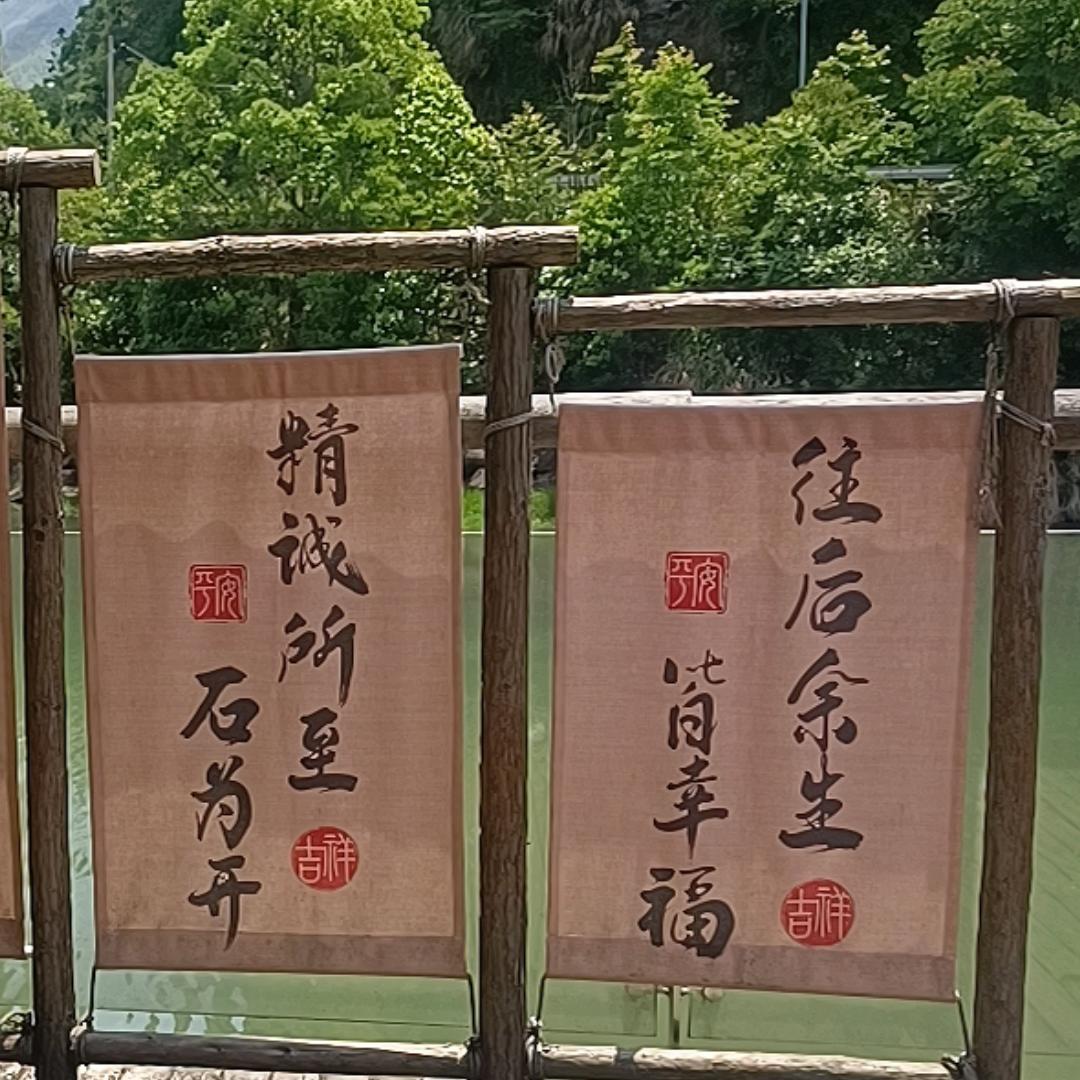 精诚所至
石为开
平安
吉祥
往后余生
皆幸福
平安
吉祥